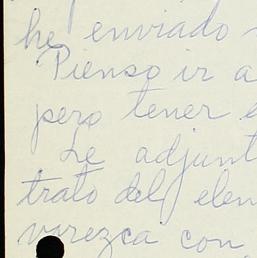 he enviado
Pienso ir a
pero tener
Le adjunt
trato del elen
vorezca con